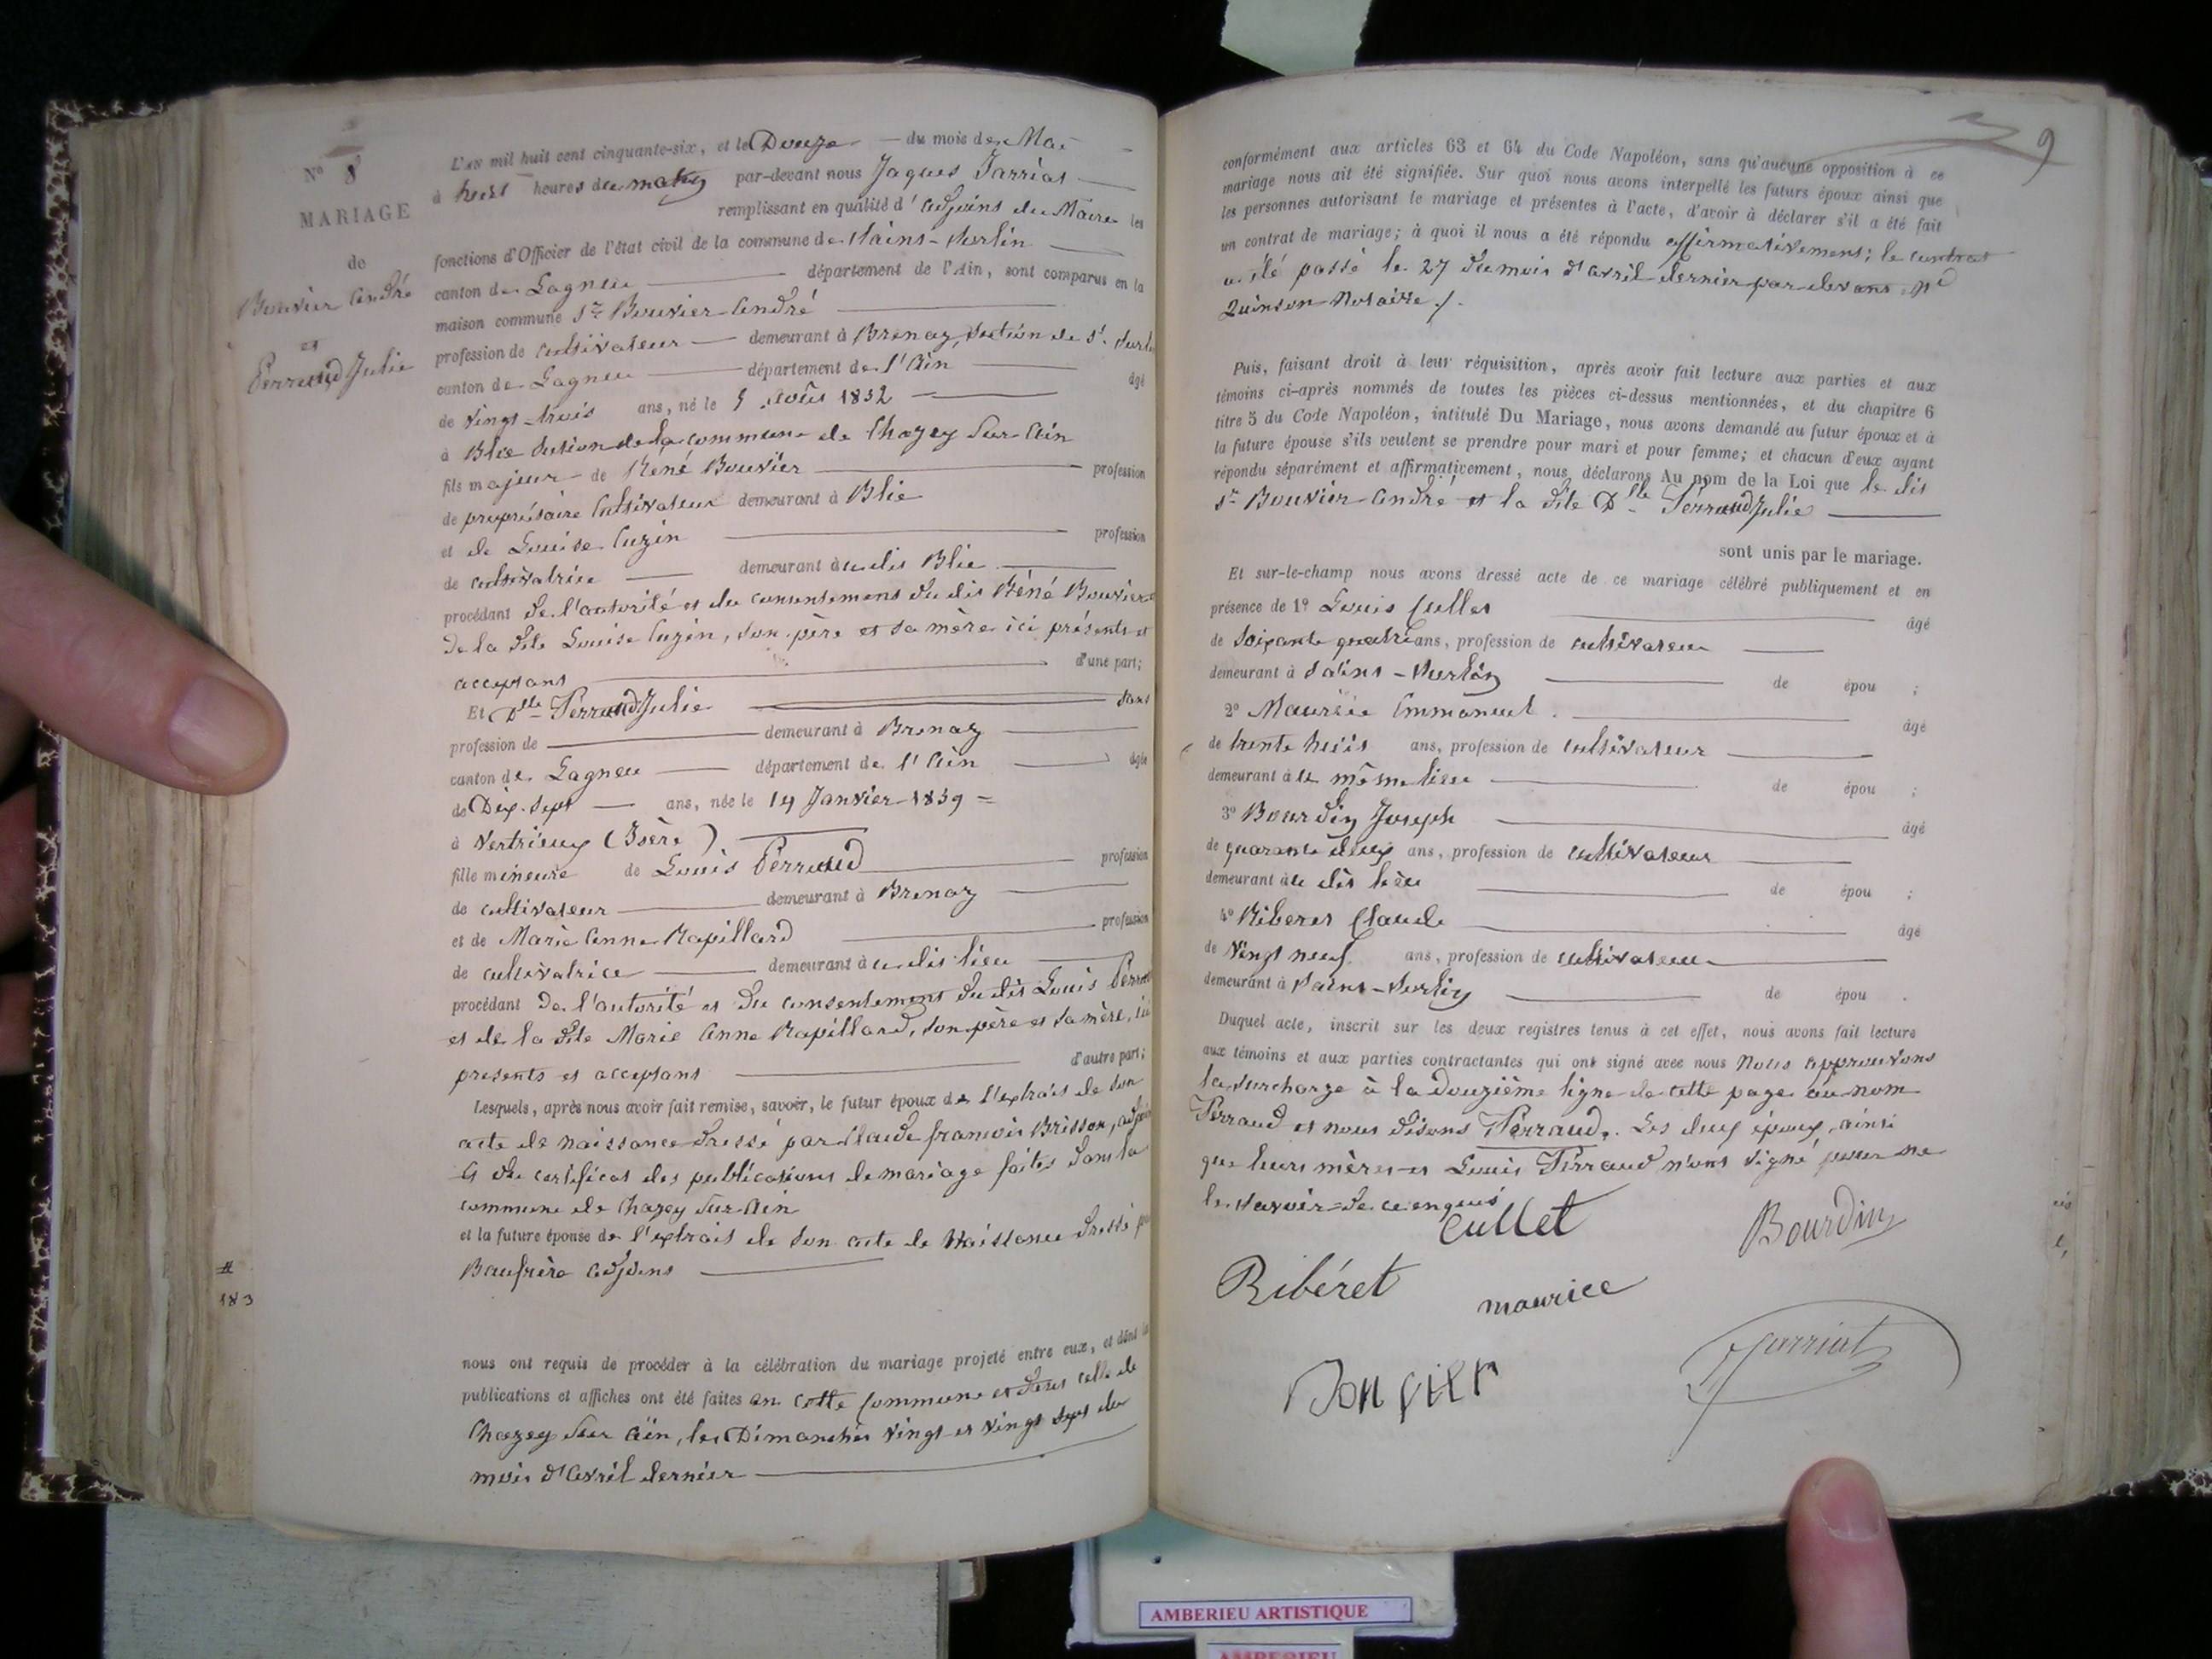 N° 8
MARIAGE
de
Bouvier André
et
Perraud Julie
L'AN mil huit cent cinquante-six, et le Douze du mois de Mai
à huit heures du matin par-devant nous Jaques Jarriat
remplissant en qualité d'adjoint du Maire les
fonctions d'Officier de l'état civil de la commune de Saint-Sorlin
canton de Lagneu département de l'Ain, sont comparus en la
maison commune Sr Bouvier André
profession de cultivateur demeurant à Brenaz, Section de St. Sorlin
canton de Lagneu département de l'Ain âgé
de vingt-trois ans, né le 5 Août 1832
à Blie Section de la commune de Chazey Sur-Ain
fils majeur de René Bouvier profession
de propriétaire Cultivateur demeurant à Blie
et de Louise Cuzin profession
de cultivatrice demeurant au dit Blie
procédant de l'autorité et du consentement du dit Réné Bouvier et
de la dite Louise Cuzin, son père et sa mère ici présents et
acceptant d'une part;
Et Dlle Perraud Julie sans
profession de demeurant à Brenaz
canton de Lagneu département de l'Ain âgée
de Dix-Sept ans, née le 14 Janvier 1839
à Vertrieux (Isère)
fille mineure de Louis Perraud profession
de cultivateur demeurant à Brenaz
et de Marie Anne Rapillard profession
de cultivatrice demeurant au dit lieu
procédant de l'autorité et du consentement du dit Louis Perraud
et de la dite Marie Anne Rapillard, son père et sa mère, ici
présents et acceptant d'autre part;
Lesquels, après nous avoir fait remise, savoir, le futur époux de l'extrait de son
acte de naissance dressé par Claude françois Brisson, adjoint
et du certificat des publications de mariage faites dans la
commune de Chazey Sur-Ain
et la future épouse de l'extrait de son acte de Naissance dressé par
Baufrère adjoint
nous ont requis de procéder à la célébration du mariage projeté entre eux, et dont les
publications et affiches ont été faites en cette Commune et dans celle de
Chazey Sur Ain, les Dimanches vingt et vingt sept du
mois d'Avril dernier
183
9
conformément aux articles 63 et 64 du Code Napoléon, sans qu'aucune opposition à ce
mariage nous ait été signifiée. Sur quoi nous avons interpellé les futurs époux ainsi que
les personnes autorisant le mariage et présentes à l'acte, d'avoir à déclarer s'il a été fait
un contrat de mariage; à quoi il nous a été répondu affirmativement; le contrat
a été passé le 27 du mois d'avril dernier par devant Me
Quinson Notaire ./.
Puis, faisant droit à leur réquisition, après avoir fait lecture aux parties et aux
témoins ci-après nommés de toutes les pièces ci-dessus mentionnées, et du chapitre 6
titre 5 du Code Napoléon, intitulé Du Mariage, nous avons demandé au futur époux et à
la future épouse s'ils veulent se prendre pour mari et pour femme; et chacun d'eux ayant
répondu séparément et affirmativement, nous déclarons Au nom de la Loi que le dit
Sr Bouvier André et la dite Dlle Perraud Julie
sont unis par le mariage.
Et sur-le-champ nous avons dressé acte de ce mariage célébré publiquement et en
présence de 1° Louis Cullet âgé
de soixante quatre ans, profession de cultivateur
demeurant à Saint-Sorlin de épou ;
2° Maurice Emmanuel âgé
de trente trois ans, profession de cultivateur
demeurant à le même lieu de épou ;
3° Bourdin Joseph âgé
de quarante deux ans, profession de cultivateur
demeurant à le dit lieu de épou ;
4° Riberet Claude âgé
de vingt neuf ans, profession de cultivateur
demeurant à Saint-Sorlin de épou .
Duquel acte, inscrit sur les deux registres tenus à cet effet, nous avons fait lecture
aux témoins et aux parties contractantes qui ont signé avec nous Nous approuvons
la surcharge à la douzième ligne de cette page au nom
Perraud et nous disons Perraud. Les deux époux, ainsi
que leurs mères et Louis Perraud n'ont signé pour ne
le savoir de ce enquis
Cullet
Bourdin
Ribéret
maurice
Bouvier
Jarriat
AMBERIEU ARTISTIQUE
AMBERIEU